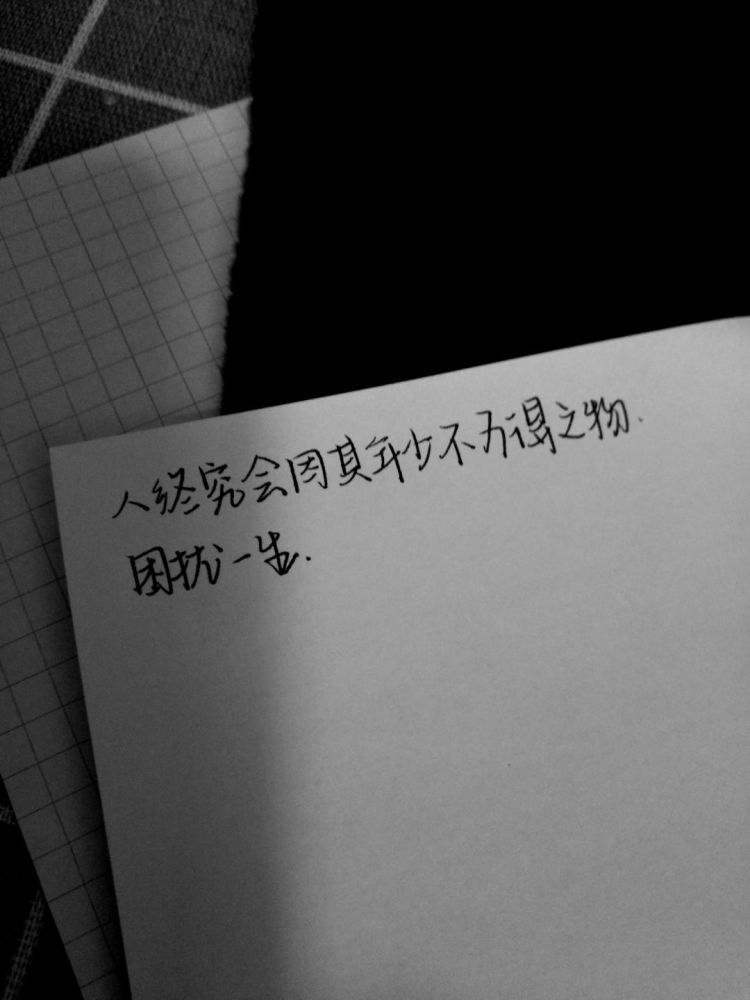 人终究会因其年少不可得之物.
困扰一生.